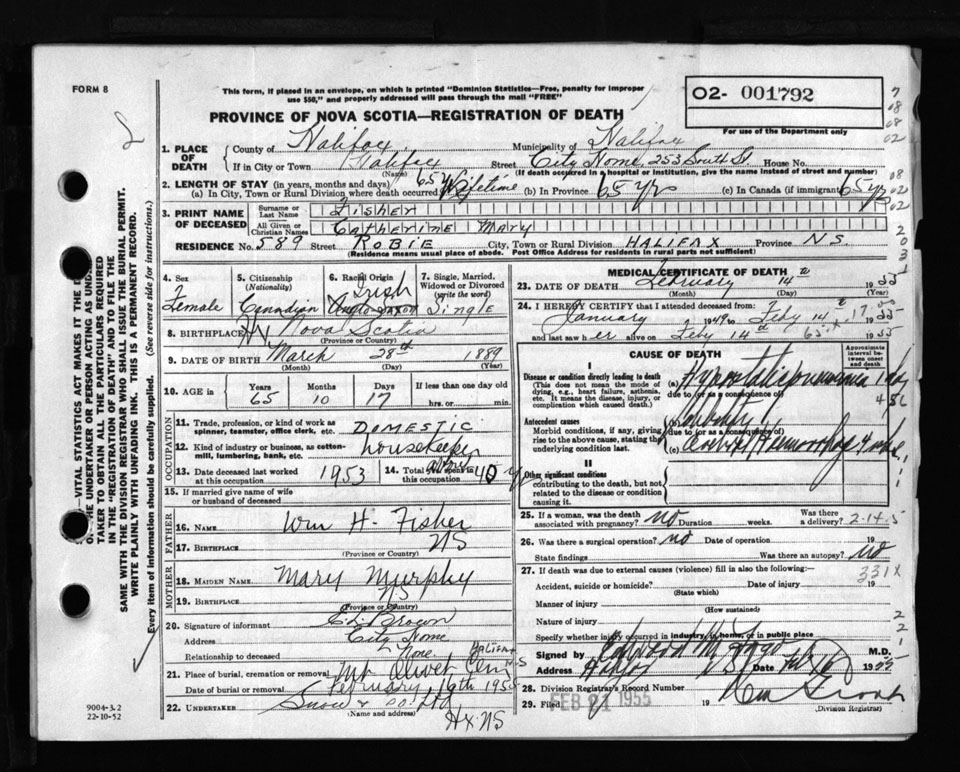 FORM 8
This form, if placed in an envelope, on which is printed "Dominion Statistics—Free, penalty for improper
use $50," and properly addressed will pass through the mail "FREE"
O2- 001792
For use of the Department only
PROVINCE OF NOVA SCOTIA—REGISTRATION OF DEATH
1. PLACE OF DEATH County of Halifax Municipality of Halifax
If in City or Town Halifax Street City Home 253 South St House No.
(Name) (If death occurred in a hospital or institution, give the name instead of street and number)
2. LENGTH OF STAY (in years, months and days)
(a) In City, Town or Rural Division where death occurred 65 Lifetime (b) In Province 65 yrs (c) In Canada (if immigrant) 65 yrs
3. PRINT NAME OF DECEASED Surname or Last Name Fisher
All Given or Christian Names Catherine Mary
RESIDENCE No. 589 Street ROBIE City, Town or Rural Division HALIFAX Province N.S.
(Residence means usual place of abode. Post Office Address for residents in rural parts not sufficient)
4. Sex 5. Citizenship (Nationality) 6. Racial Origin 7. Single, Married, Widowed or Divorced (write the word)
Irish
Female Canadian Anglo-Saxon Single
8. BIRTHPLACE Hx Nova Scotia
(Province or Country)
9. DATE OF BIRTH March 28th 1889
(Month) (Day) (Year)
10. AGE in Years Months Days If less than one day old
65 10 17 hrs. or min.
OCCUPATION
11. Trade, profession, or kind of work as spinner, teamster, office clerk, etc. DOMESTIC
12. Kind of industry or business, as cotton-mill, lumbering, bank, etc. housekeeper
13. Date deceased last worked at this occupation 1953 14. Total years spent in this occupation 40 y
15. If married give name of wife or husband of deceased
FATHER
16. NAME Wm H. Fisher
17. BIRTHPLACE NS
(Province or Country)
MOTHER
18. MAIDEN NAME Mary Murphy
19. BIRTHPLACE NS
(Province or Country)
20. Signature of informant C L Brown
Address City Home
Relationship to deceased None
21. Place of burial, cremation or removal Mt Olivet Cem HALIFAX NS
Date of burial or removal February 16th 1955
22. UNDERTAKER Snow & Co Ltd
(Name and address) Hx NS
9004-3.2
22-10-52
MEDICAL CERTIFICATE OF DEATH
23. DATE OF DEATH February 14th 1955
(Month) (Day) (Year)
24. I HEREBY CERTIFY that I attended deceased from:
January 1949 to Feby 14th 1955
and last saw her alive on Feby 14th 1955
CAUSE OF DEATH
Approximate interval between onset and death
I
Disease or condition directly leading to death
(This does not mean the mode of dying, e.g., heart failure, asthma, etc. It means the disease, injury, or complication which caused death.)
(a) Hypostatic pneumonia 1 day
due to (or as a consequence of)
Antecedent causes
Morbid conditions, if any, giving rise to the above cause, stating the underlying condition last.
due to (or as a consequence of)
Cerebral Hemorrhage
II
Other significant conditions
contributing to the death, but not related to the disease or condition causing it.
25. If a woman, was the death associated with pregnancy? no Duration weeks. Was there a delivery? 2-14-5
26. Was there a surgical operation? no Date of operation 19
State findings Was there an autopsy? no
27. If death was due to external causes (violence) fill in also the following: 331X
Accident, suicide or homicide? Date of injury 19
(State which)
Manner of injury
(How sustained)
Nature of injury
Specify whether injury occurred in industry, in home, or in public place
Signed by M.D.
Address Halifax N S Date Feb 16 1955
28. Division Registrar's Record Number
29. Filed FEB 21 1955 19
(Division Registrar)
—VITAL STATISTICS ACT MAKES IT THE
THE UNDERTAKER OR PERSON ACTING AS UNDER-
TAKER TO OBTAIN ALL THE PARTICULARS REQUIRED
IN THE "REGISTRATION OF DEATH" AND TO FILE THE
SAME WITH THE DIVISION REGISTRAR WHO SHALL ISSUE THE BURIAL PERMIT.
WRITE PLAINLY WITH UNFADING INK. THIS IS A PERMANENT RECORD.
Every item of information should be carefully supplied. (See reverse side for instructions.)